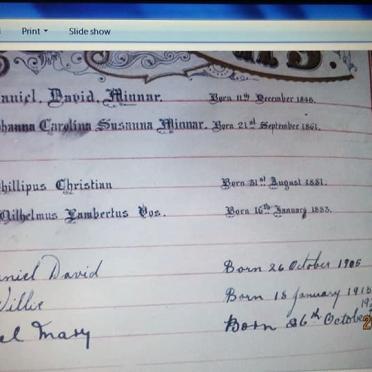 Print Slide show
aniel, David, Minnar. Born 11th December 1846.
ohanna Carolina Susanna Minnar. Born 21st September 1861.
hillipus Christian Born 31st August 1881.
Wilhelmus Lambertus Vos. Born 16th January 1883.
aniel David Born 26 October 1905
Willie Born 18 January
el Mary Born 26th October